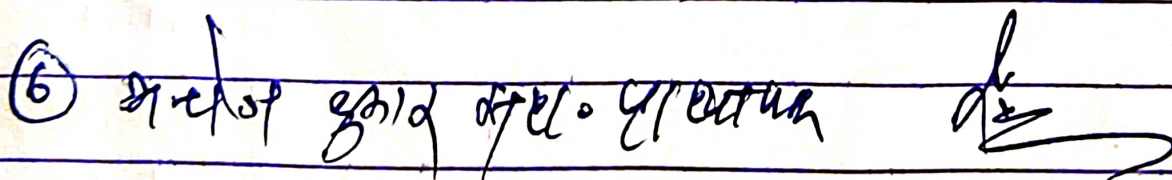 ⑥ मनोज कुमार सहा. प्राध्यापक